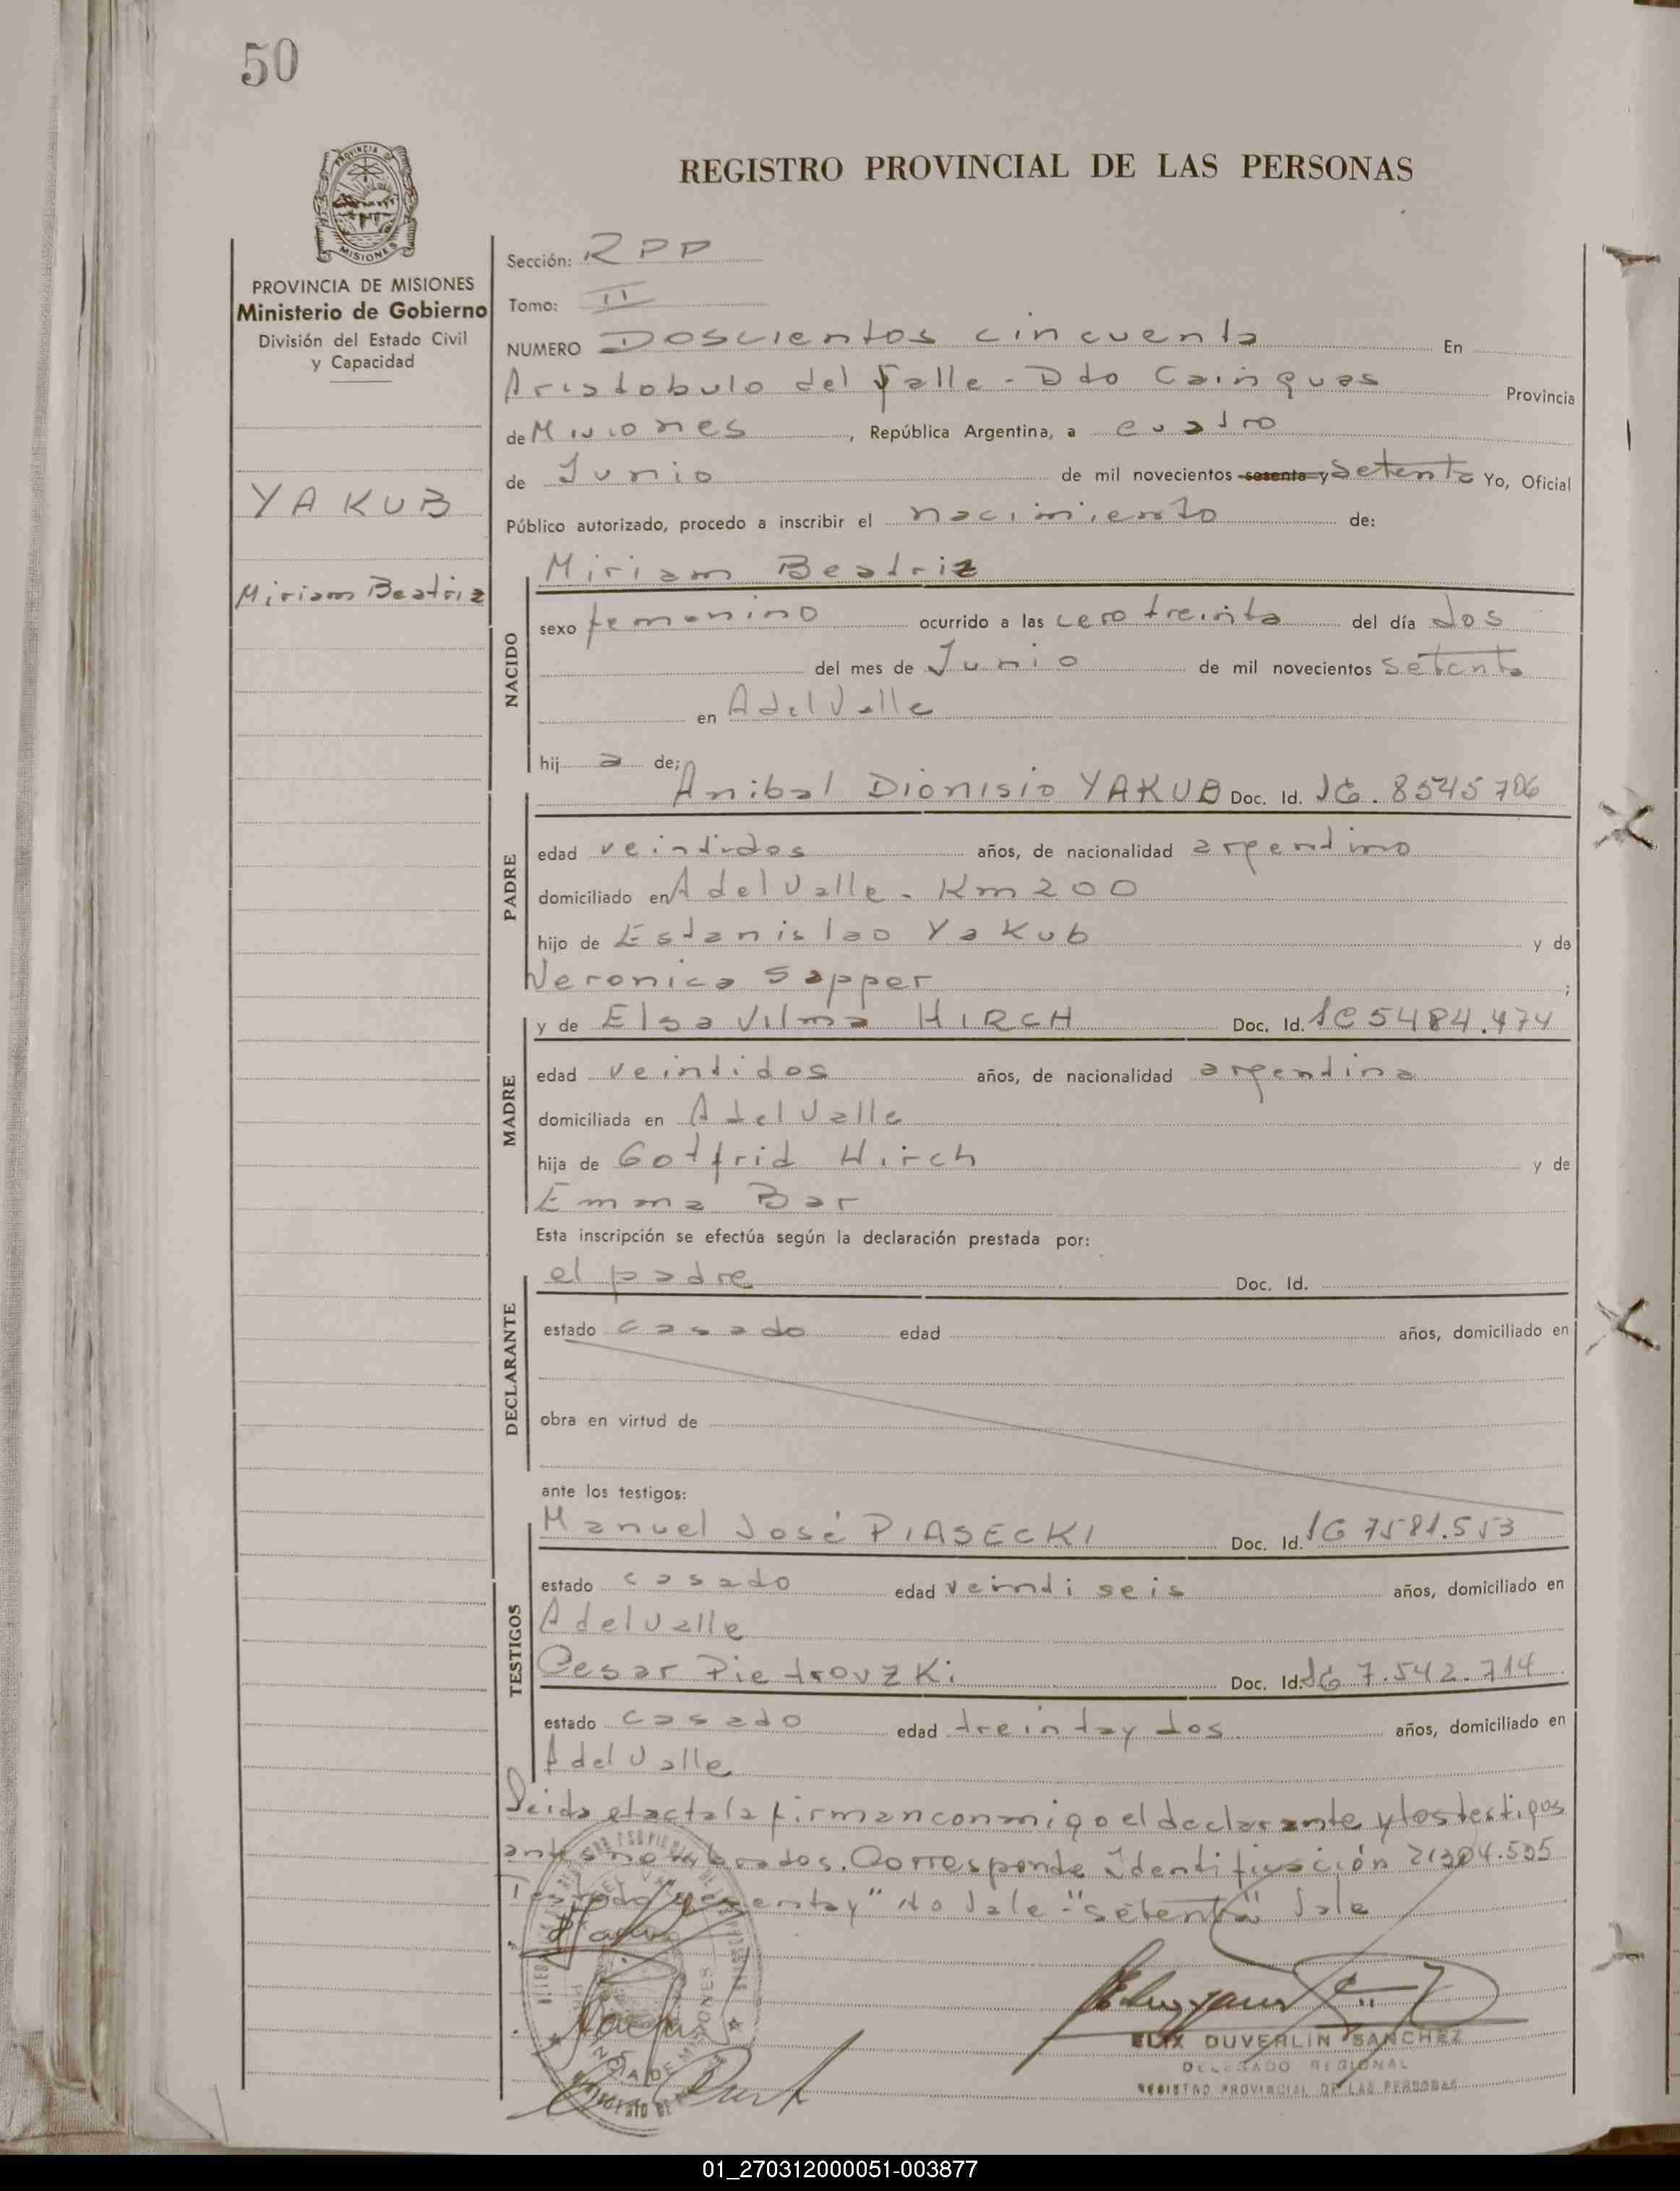 50
PROVINCIA DE
MISIONES
REGISTRO PROVINCIAL DE LAS PERSONAS
PROVINCIA DE MISIONES
Ministerio de Gobierno
División del Estado Civil
y Capacidad
YAKUB
Miriam Beatriz
Sección: RPP
Tomo: II
NUMERO Doscientos cincuenta En
Aristobulo del Valle - Dto Cainguas Provincia
de Misiones, República Argentina, a cuatro
de Junio de mil novecientos sesenta y setenta Yo, Oficial
Público autorizado, procedo a inscribir el nacimiento de:
NACIDO
Miriam Beatriz
sexo femenino ocurrido a las cero treinta del día dos
del mes de Junio de mil novecientos setenta
en A del Valle
hij a de;
PADRE
Anibal Dionisio YAKUB Doc. Id. IG. 8545706
edad veintidos años, de nacionalidad argentino
domiciliado en A del Valle - Km 200
hijo de Estanislao Yakub y de
Veronica Sapper ;
MADRE
y de Elsa Vilma HIRCH Doc. Id. 1C 5484.474
edad veintidos años, de nacionalidad argentina
domiciliada en A del Valle
hija de Gotfrid Hirch y de
Emma Bar
Esta inscripción se efectúa según la declaración prestada por:
DECLARANTE
el padre Doc. Id.
estado casado edad años, domiciliado en
obra en virtud de
ante los testigos:
TESTIGOS
Manuel José PIASECKI Doc. Id. IG 7581.553
estado casado edad veinti seis años, domiciliado en
A del Valle
Cesar Pietrovzki Doc. Id. IG 7.542.714
estado casado edad treinta y dos años, domiciliado en
A del Valle
Leida el acta la firman conmigo el declarante y los testigos
antes nombrados. Corresponde Identificación 21304.535
Testado "sesenta y" No Vale - "setenta" Vale
ELIX DUVERLIN SANCHEZ
DELEGADO REGIONAL
REGISTRO PROVINCIAL DE LAS PERSONAS
01_270312000051-003877